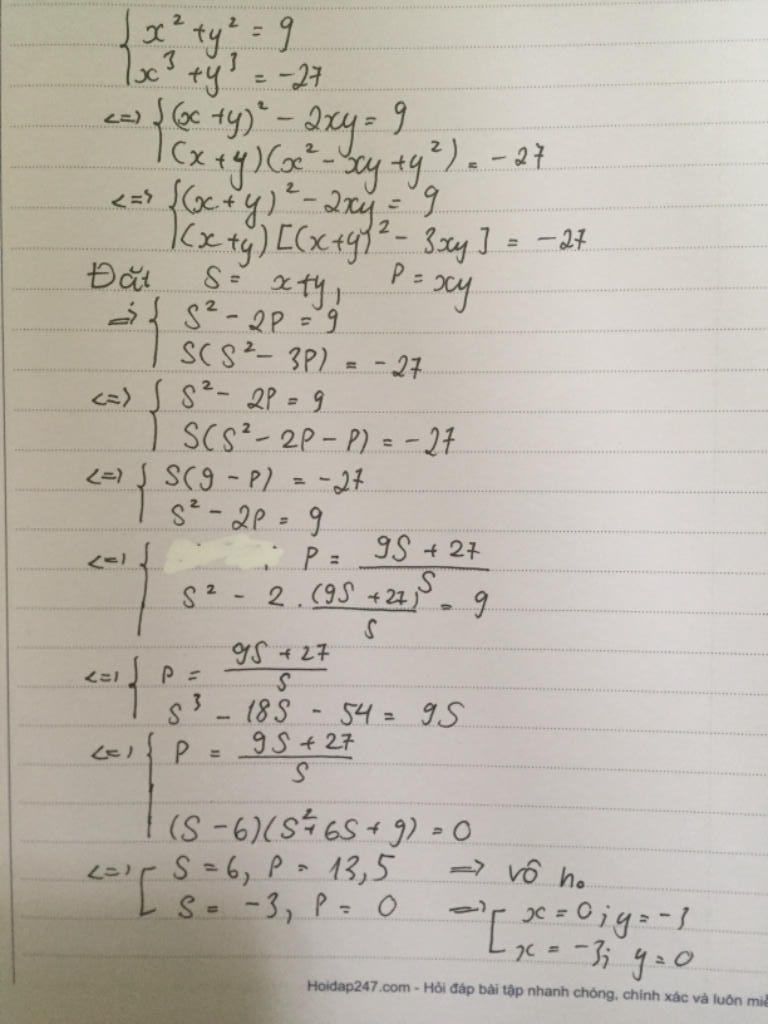 { x² + y² = 9
x³ + y³ = -27
<=> { (x + y)² - 2xy = 9
(x + y)(x² - xy + y²) = -27
<=> { (x + y)² - 2xy = 9
(x + y)[(x+y)² - 3xy] = -27
Đặt S = x+y, P = xy
=> { S² - 2P = 9
S(S² - 3P) = -27
<=> { S² - 2P = 9
S(S² - 2P - P) = -27
<=> { S(9 - P) = -27
S² - 2P = 9
<=> { P = (9S + 27)/S
S² - 2 . (9S + 27)/S = 9
<=> { P = (9S + 27)/S
S³ - 18S - 54 = 9S
<=> { P = (9S + 27)/S
(S - 6)(S² + 6S + 9) = 0
<=> [ S = 6, P = 13,5 => vô n₀
S = -3, P = 0 => [ x = 0; y = -3
x = -3; y = 0
Hoidap247.com - Hỏi đáp bài tập nhanh chóng, chính xác và luôn miễ